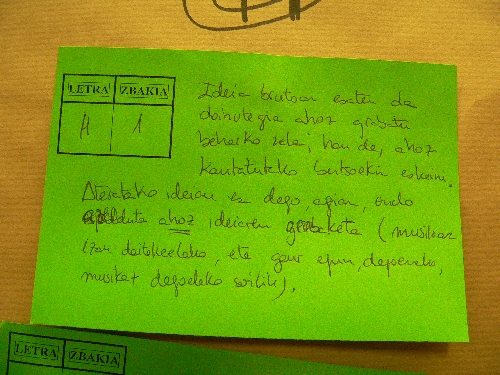 LETRA ZBAKIA
H 1
Ideia bratsan esaten da
doinutegia ahoz grabatu
beharko zela, hau da, ahoz
kantatutako bertsoekin
Ateratako ideian ez dago, agian, ondo
ahoz ideiaren grabaketa (musikaz
izan daitekeelako, eta gaur egun, daudenak,
musikat daudelako soilik).
LETRA ZBAKIA